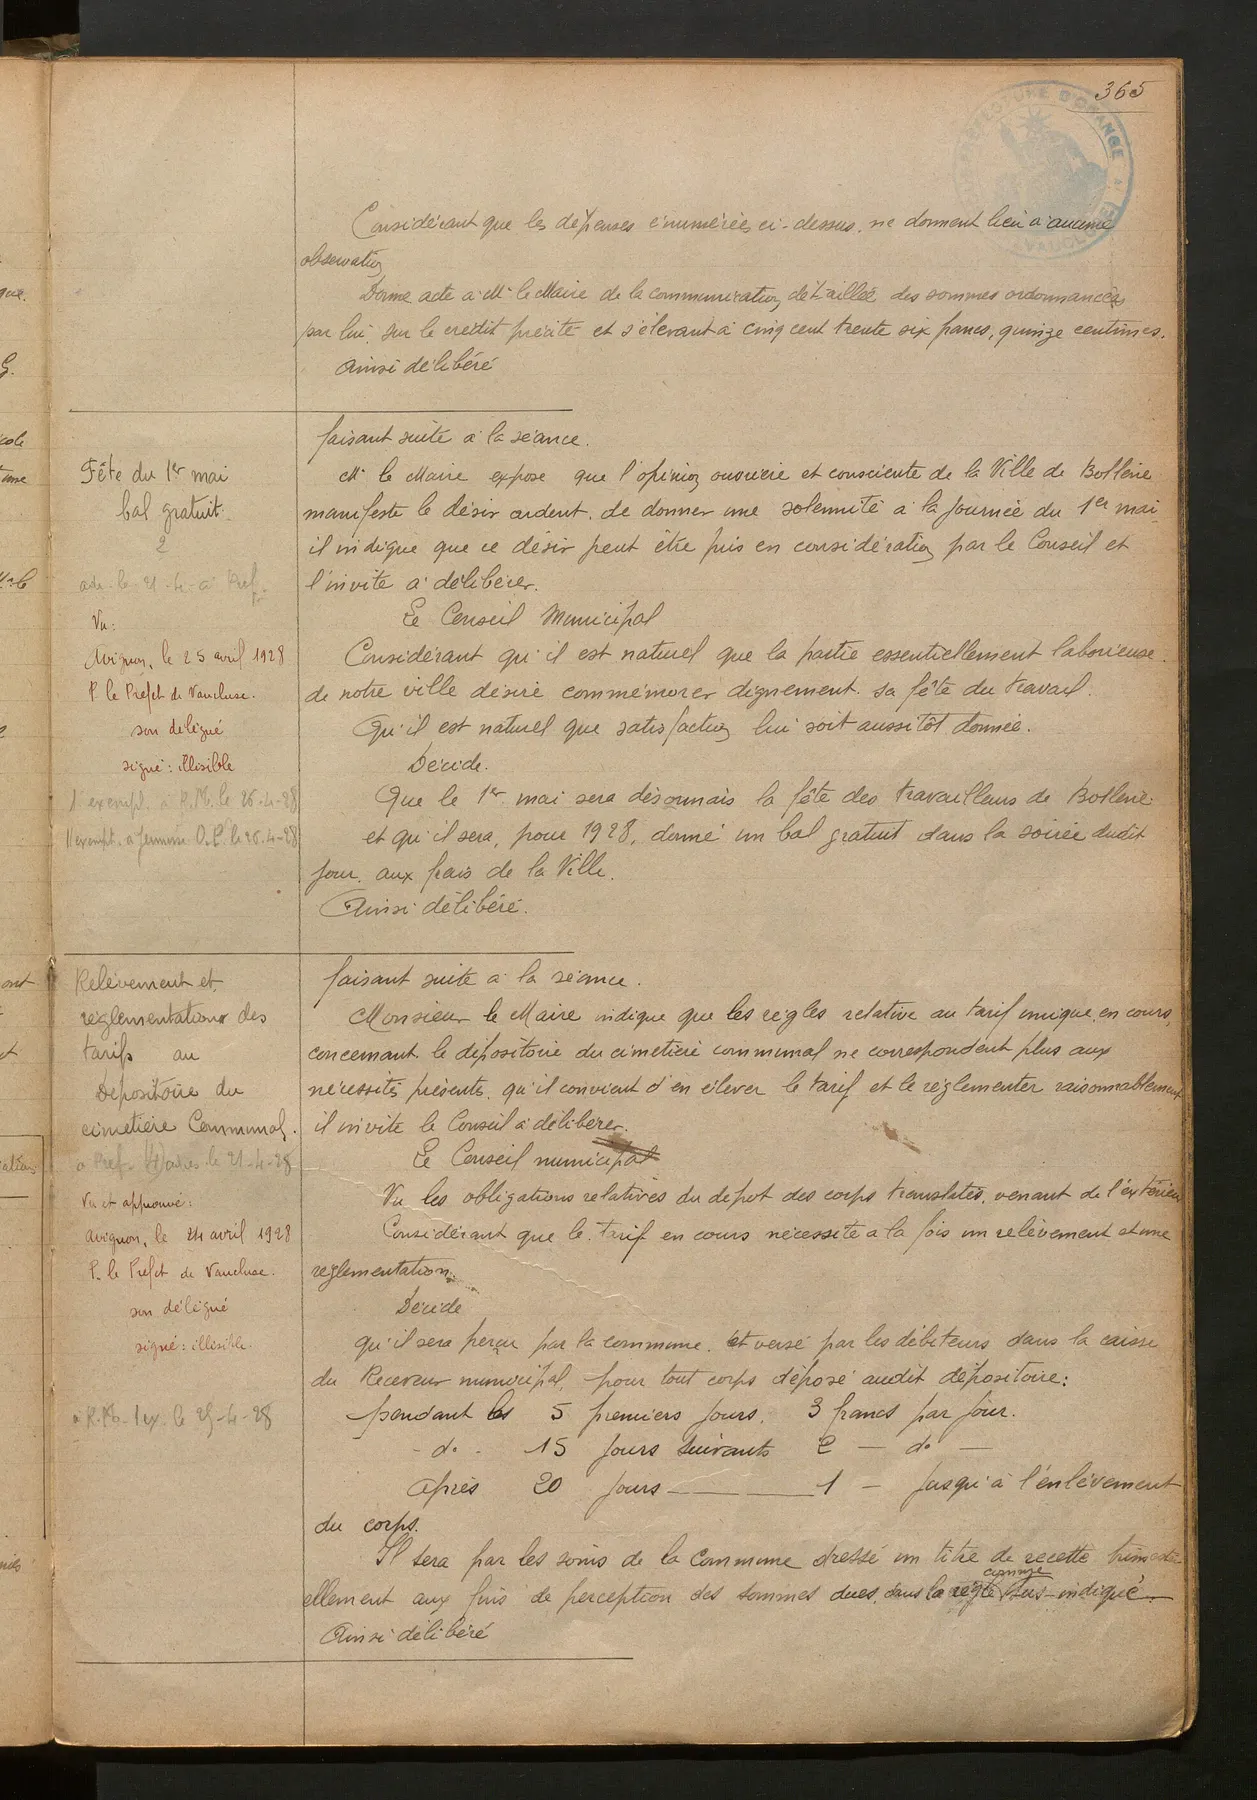 365
Considérant que les dépenses énumérées ci-dessus, ne donnent lieu à aucune
observation
Donne acte à Mr le Maire de la communication détaillée des sommes ordonnancées
par lui, sur le crédit précité et s'élevant à cinq cent trente six francs, quinze centimes.
Ainsi délibéré
faisant suite à la séance.
Fête du 1er mai
bal gratuit.
2
Vu:
Avignon, le 25 avril 1928
P. le Préfet de Vaucluse.
son délégué
signé: illisible
1 exempl. à R.M. le 26-4-28
Mr le Maire expose que l'opinion ouvrière et consciente de la Ville de Bollène
manifeste le désir ardent, de donner une solennité à la journée du 1er mai,
il indique que ce désir peut être pris en considération par le Conseil et
l'invite à délibérer.
Le Conseil Municipal
Considérant qu'il est naturel que la partie essentiellement laborieuse
de notre ville désire commémorer dignement sa fête du travail.
Qu'il est naturel que satisfaction lui soit aussitôt donnée.
Décide.
Que le 1er mai sera désormais la fête des travailleurs de Bollène
et qu'il sera, pour 1928, donné un bal gratuit dans la soirée dudit
jour, aux frais de la Ville.
Ainsi délibéré.
Relèvement et
réglementation des
tarifs au
Dépositoire du
cimetière Communal.
Vu et approuvé:
Avignon, le 24 avril 1928
P. le Préfet de Vaucluse.
son délégué
signé: illisible.
à R.M. 1 ex. le 25-4-28
faisant suite à la séance.
Monsieur le Maire indique que les règles relative au tarif unique en cours,
concernant le dépositoire du cimetière communal ne correspondent plus aux
nécessités présentes, qu'il convient d'en élever le tarif et le réglementer raisonnablement
il invite le Conseil à délibérer.
Le Conseil municipal
Vu les obligations relatives du depot des corps translatés, venant de l'extérieur
Considérant que le tarif en cours nécessite à la fois un relèvement et une
reglementation.
Décide
qu'il sera perçu par la commune et versé par les débiteurs dans la caisse
du Receveur municipal, pour tout corps déposé audit dépositoire:
pendant les 5 premiers jours, 3 francs par jour.
- do - 15 jours suivants 2 — do —
après 20 jours ——— 1 — jusqu'à l'enlèvement
du corps.
Il sera par les soins de la Commune dressé un titre de recette trimestri
ellement aux fins de perception des sommes dues, dans la règle comme sus-indiqué.
Ainsi délibéré